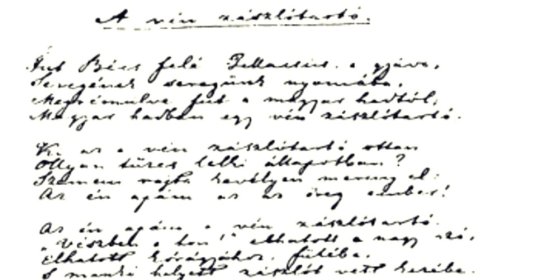 A vén zászlótartó.
Fut Bécs felé Jellasics, a gyáva,
Seregének seregünk nyomába,
Megrémülve fut a magyar hadtól,
Magyar hadban egy vén zászlótartó.
Ki az a vén zászlótartó ottan
Ollyan tüzes lelki állapotban?
Szemem rajta kevélyen mereng el:
Az én apám az az öreg ember!
Az én apám a vén zászlótartó.
„Vészben a hon!” elhatott a nagy szó,
Elhatott fülébe,
S mankó helyett zászlót vett kezébe.